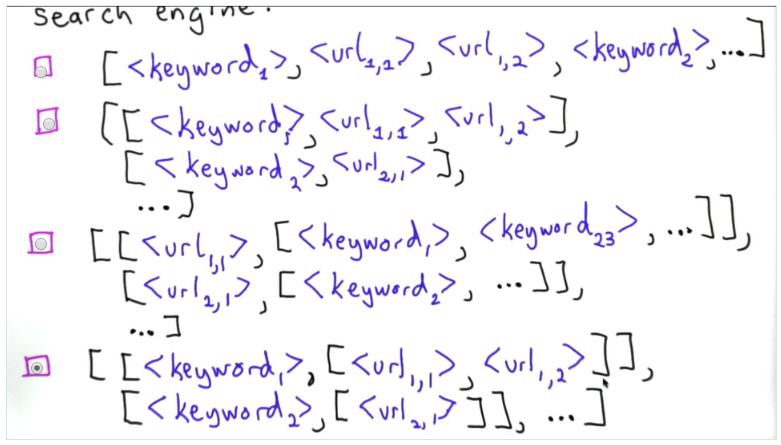 search engine?
[<keyword₁>, <url₁,₁>, <url₁,₂>, <keyword₂>, ...]
[[<keyword₁>, <url₁,₁>, <url₁,₂>],
[<keyword₂>, <url₂,₁>],
...]
[[<url₁,₁>, [<keyword₁>, <keyword₂₃>, ...]],
[<url₂,₁>, [<keyword₂>, ...]],
...]
[[<keyword₁>, [<url₁,₁>, <url₁,₂>]],
[<keyword₂>, [<url₂,₁>]], ...]